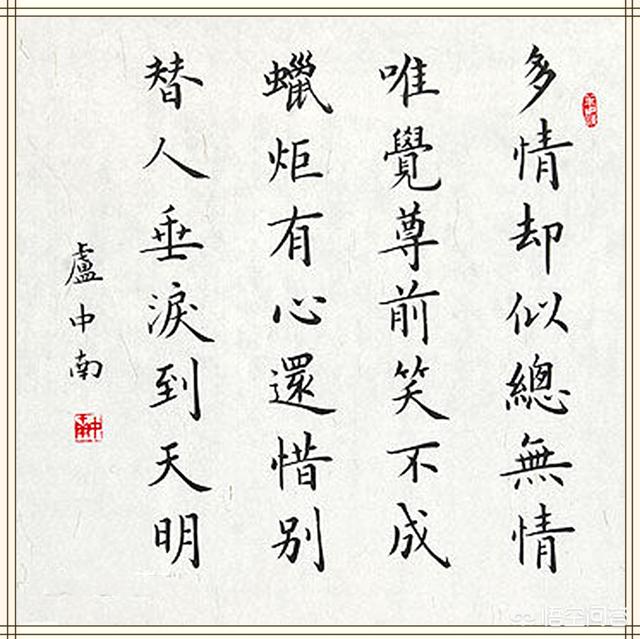 多情却似總無情
唯覺尊前笑不成
蠟炬有心還惜别
替人垂淚到天明
盧中南
悟空问答